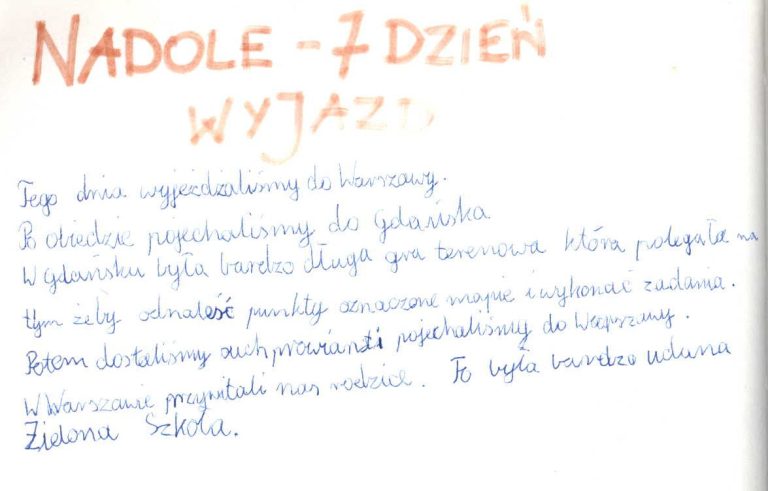 NADOLE - 7 DZIEŃ
WYJAZD
Tego dnia wyjeżdżaliśmy do Warszawy.
Po obiedzie pojechaliśmy do Gdańska.
W Gdańsku była bardzo długa gra terenowa która polegała na
tym żeby odnaleść punkty oznaczone mapie i wykonać zadania.
Potem dostaliśmy suchprowiant i pojechaliśmy do Warszawy.
W Warszawie przywitali nas rodzice. To była bardzo udana
Zielona Szkoła.